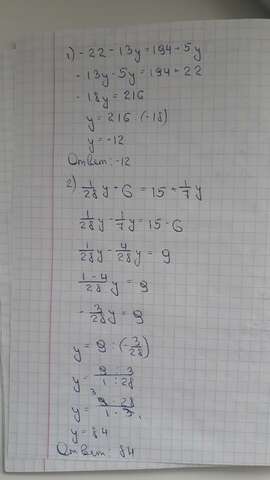 1) - 22 - 13y = 194 + 5y
- 13y - 5y = 194 + 22
- 18y = 216
y = 216 : (-18)
y = -12
Ответ: -12
2) 1/28 y + 6 = 15 + 1/7 y
1/28 y - 1/7 y = 15 - 6
1/28 y - 4/28 y = 9
1 - 4/28 y = 9
- 3/28 y = 9
y = 9 : (- 3/28)
y = 9 : 3/1 : 28
y = 9 · 28/1 · 3
y = 84
Ответ: 84